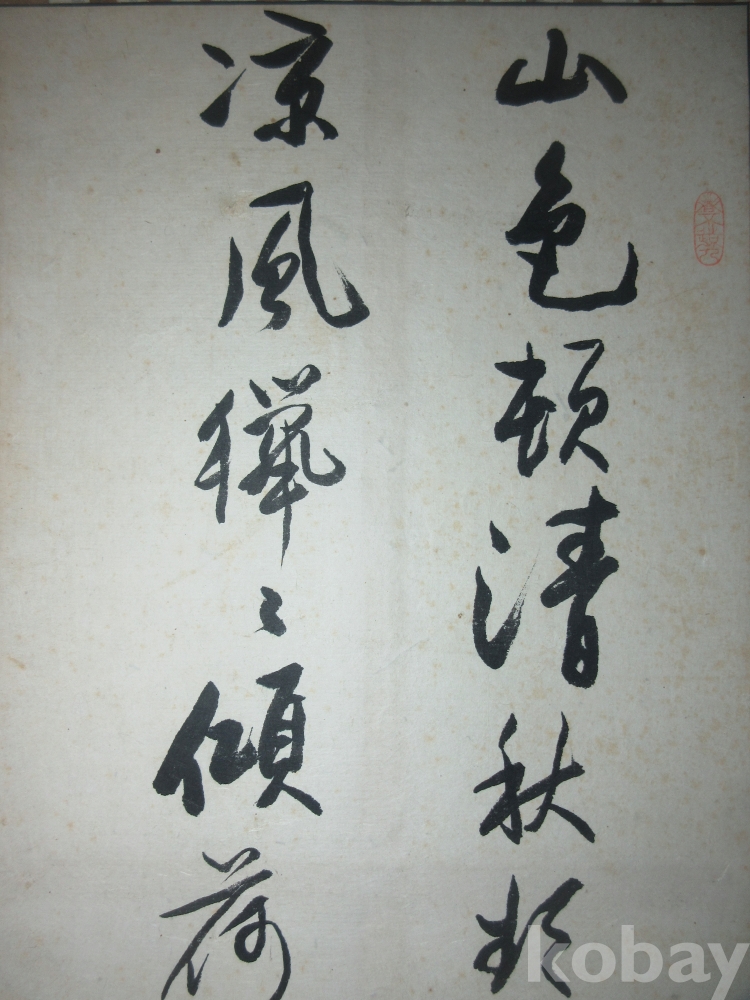 山色頓清秋
凉風獵々傾荷
kobay